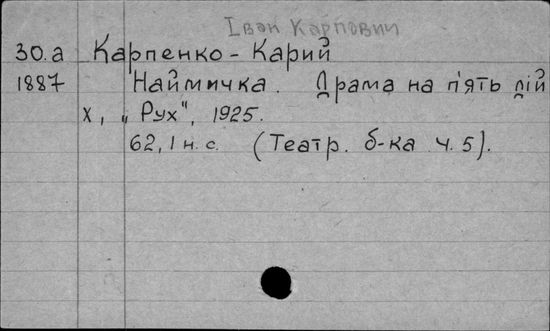 Іван Карпович
30.а Карпенко-Карий
1887 Наймичка. Драма на п'ять дій
Х., „Рух", 1925.
62, 1 н. с. (Театр. б-ка ч. 5).